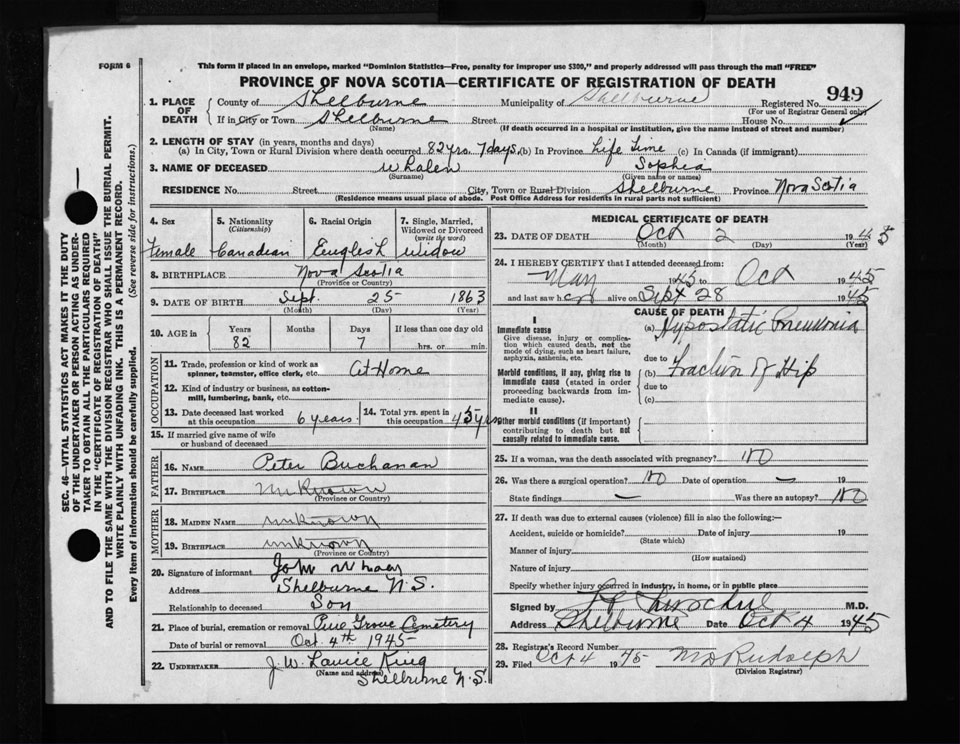 FORM 6
This form if placed in an envelope, marked "Dominion Statistics—Free, penalty for improper use $300," and properly addressed will pass through the mail "FREE"
PROVINCE OF NOVA SCOTIA—CERTIFICATE OF REGISTRATION OF DEATH
949
SEC. 46—VITAL STATISTICS ACT MAKES IT THE DUTY
OF THE UNDERTAKER OR PERSON ACTING AS UNDER-
TAKER TO OBTAIN ALL THE PARTICULARS REQUIRED
IN THE "CERTIFICATE OF REGISTRATION OF DEATH"
AND TO FILE THE SAME WITH THE DIVISION REGISTRAR WHO SHALL ISSUE THE BURIAL PERMIT.
WRITE PLAINLY WITH UNFADING INK. THIS IS A PERMANENT RECORD.
Every item of information should be carefully supplied. (See reverse side for instructions.)
1. PLACE OF DEATH County of Shelburne Municipality of Shelburne Registered No.
(For use of Registrar General only)
If in City or Town Shelburne Street House No.
(Name) (If death occurred in a hospital or institution, give the name instead of street and number)
2. LENGTH OF STAY (in years, months and days)
(a) In City, Town or Rural Division where death occurred 82 yrs. 7 days. (b) In Province Life Time (c) In Canada (if immigrant)
3. NAME OF DECEASED Whalen Sophia
(Surname) (Given name or names)
RESIDENCE No. Street City, Town or Rural Division Shelburne Province Nova Scotia
(Residence means usual place of abode. Post Office Address for residents in rural parts not sufficient)
4. Sex 5. Nationality 6. Racial Origin 7. Single, Married,
(Citizenship) Widowed or Divorced
(write the word)
Female Canadian English Widow
8. BIRTHPLACE Nova Scotia
(Province or Country)
9. DATE OF BIRTH Sept. 25 1863
(Month) (Day) (Year)
10. AGE in Years Months Days If less than one day old
82 7 hrs. or min.
OCCUPATION
11. Trade, profession or kind of work as
spinner, teamster, office clerk, etc. At Home
12. Kind of industry or business, as cotton-
mill, lumbering, bank, etc.
13. Date deceased last worked
at this occupation 6 years 14. Total yrs. spent in
this occupation 45 yrs
15. If married give name of wife
or husband of deceased
FATHER
16. NAME Peter Buchanan
17. BIRTHPLACE unknown
(Province or Country)
MOTHER
18. MAIDEN NAME unknown
19. BIRTHPLACE unknown
(Province or Country)
20. Signature of informant John
Address Shelburne N.S.
Relationship to deceased Son
21. Place of burial, cremation or removal Pine Grove Cemetery
Date of burial or removal Oct. 4th 1945
22. UNDERTAKER J. W. King
(Name and address) Shelburne N.S.
MEDICAL CERTIFICATE OF DEATH
23. DATE OF DEATH Oct 2 1945
(Month) (Day) (Year)
24. I HEREBY CERTIFY that I attended deceased from:
May 1945 to Oct 1945
and last saw h er alive on Sept 28 1945
CAUSE OF DEATH
I
Immediate cause
Give disease, injury or complica-
tion which caused death, not the
mode of dying, such as heart failure,
asphyxia, asthenia, etc.
(a) Hypostatic Pneumonia
due to
Morbid conditions, if any, giving rise to
immediate cause (stated in order
proceeding backwards from im-
mediate cause).
(b) Fraction of Hip
due to
(c)
II
Other morbid conditions (if important)
contributing to death but not
causally related to immediate cause.
25. If a woman, was the death associated with pregnancy? No
26. Was there a surgical operation? No Date of operation — 19
State findings — Was there an autopsy? No
27. If death was due to external causes (violence) fill in also the following:—
Accident, suicide or homicide? Date of injury 19
(State which)
Manner of injury
(How sustained)
Nature of injury
Specify whether injury occurred in industry, in home, or in public place
Signed by M.D.
Address Shelburne Date Oct 4 1945
28. Registrar's Record Number
29. Filed Oct 4 1945 M D Rudolph
(Division Registrar)